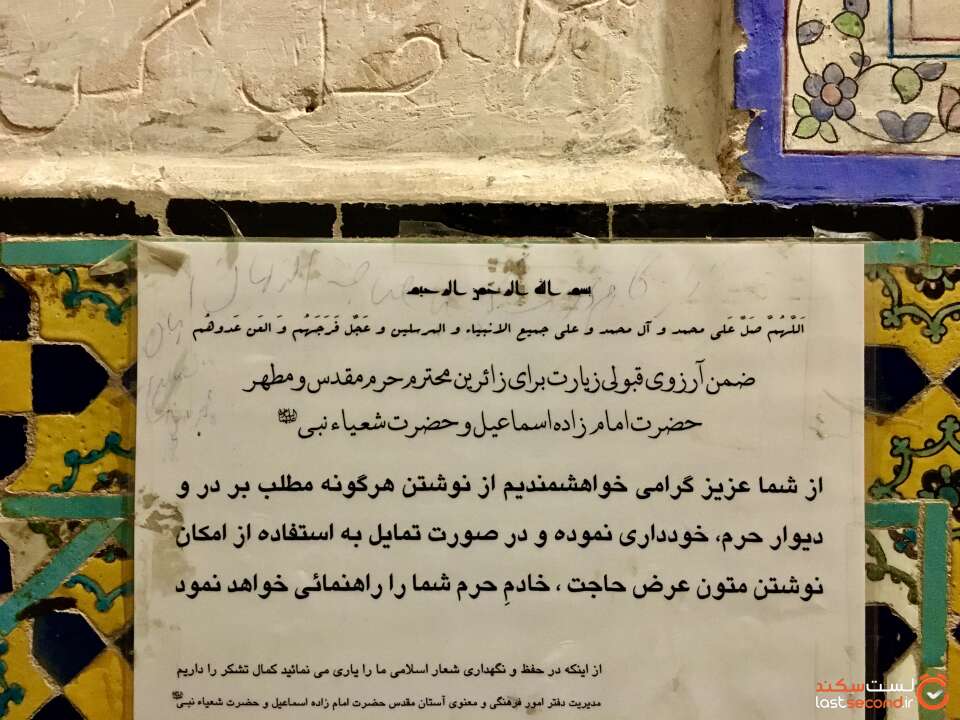 بسم الله الرحمن الرحیم
اَللّهُمَّ صَلِّ عَلی محمد و آل محمد و علی جمیع الانبیاء و المرسلین و عَجِّل فَرَجَهُم وَ العَن عَدوهُم
ضمن آرزوی قبولی زیارت برای زائرین محترم حرم مقدس و مطهر
حضرت امام زاده اسماعیل و حضرت شعیاء نبی
از شما عزیز گرامی خواهشمندیم از نوشتن هرگونه مطلب بر در و
دیوار حرم، خودداری نموده و در صورت تمایل به استفاده از امکان
نوشتن متون عرض حاجت ، خادمِ حرم شما را راهنمائی خواهد نمود
از اینکه در حفظ و نگهداری شعار اسلامی ما را یاری می نمائید کمال تشکر را داریم
مدیریت دفتر امور فرهنگی و معنوی آستان مقدس حضرت امام زاده اسماعیل و حضرت شعیاء نبی
لست سکند
lastsecond.ir